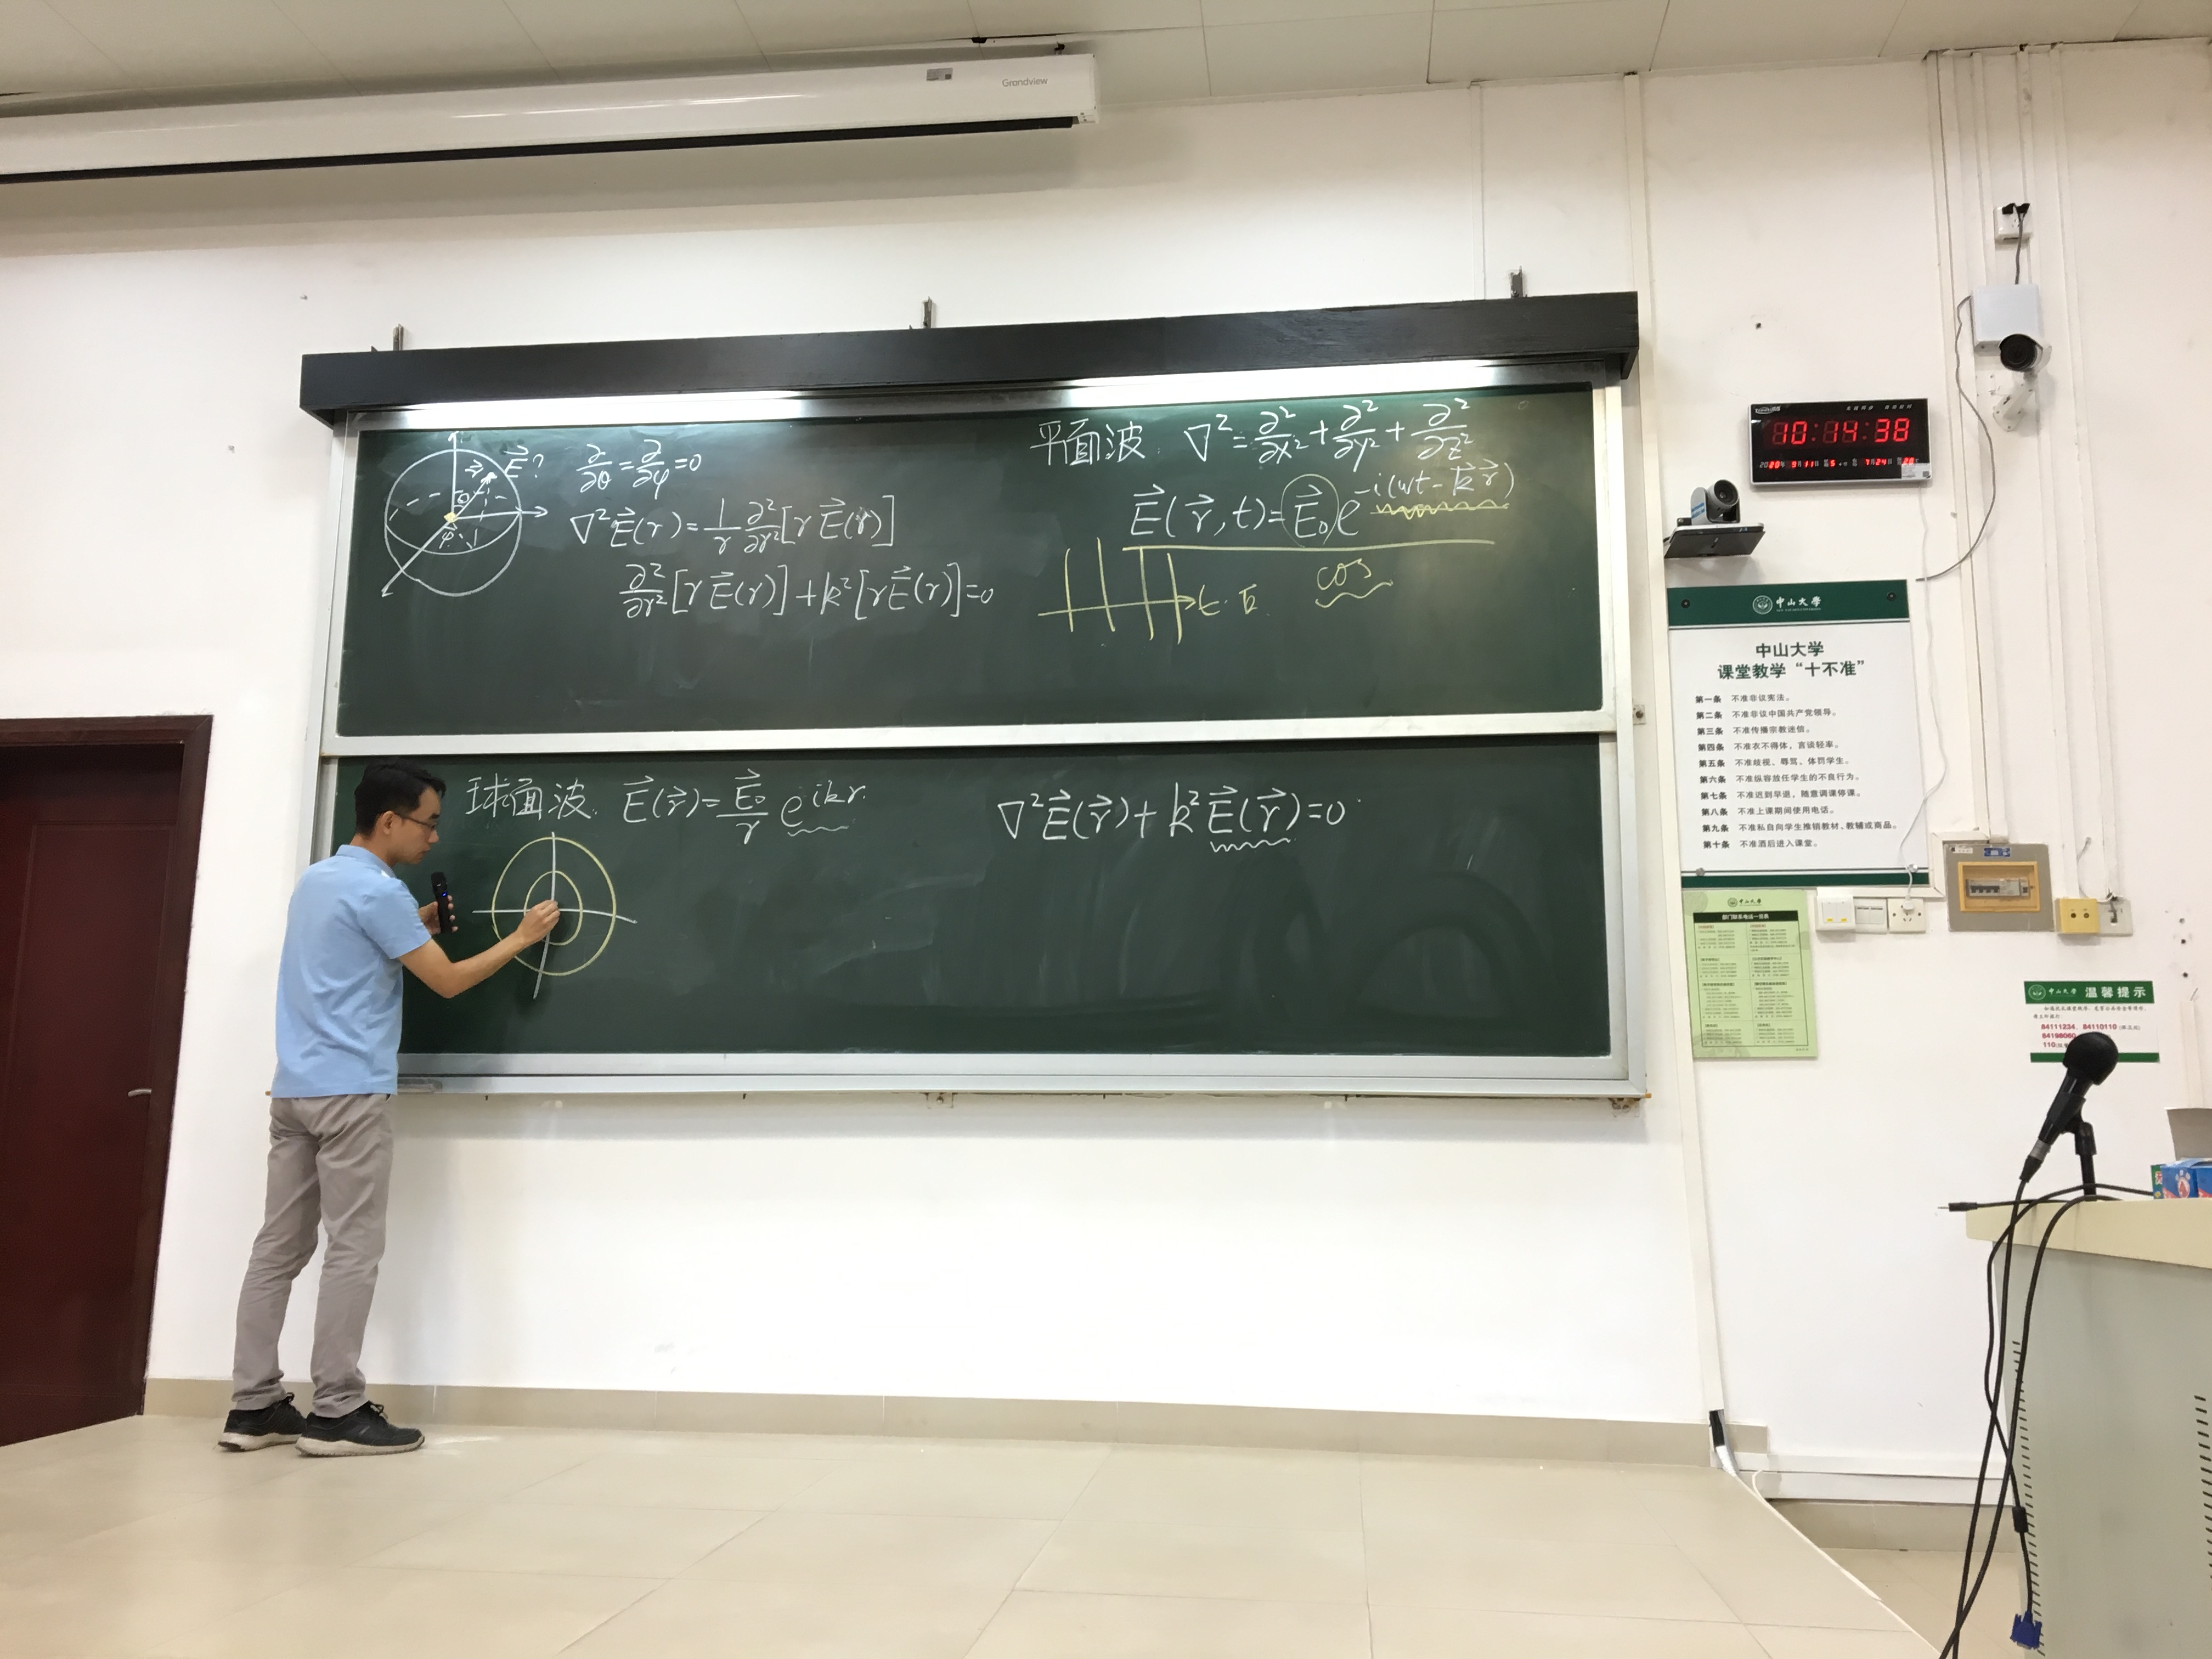 Grandview
E⃗?
r⃗
θ
φ
∂/∂θ = ∂/∂φ = 0
∇²E⃗(r) = 1/r ∂²/∂r² [r E⃗(r)]
∂²/∂r² [r E⃗(r)] + k² [r E⃗(r)] = 0
平面波. ∇² = ∂²/∂x² + ∂²/∂y² + ∂²/∂z²
E⃗(r⃗, t) = E⃗₀ e^{-i(ωt - k⃗·r⃗)}
cos
球面波. E⃗(r⃗) = E⃗₀/r e^{ikr}.
∇²E⃗(r⃗) + k² E⃗(r⃗) = 0
10:14:38
中山大學
中山大学
课堂教学“十不准”
第一条 不准非议宪法。
第二条 不准非议中国共产党领导。
第三条 不准传播宗教迷信。
第四条 不准衣不得体，言谈轻率。
第五条 不准歧视、辱骂、体罚学生。
第六条 不准纵容放任学生的不良行为。
第七条 不准迟到早退，随意调课停课。
第八条 不准上课期间使用电话。
第九条 不准私自向学生推销教材、教辅或商品。
第十条 不准酒后进入课堂。
中山大學
部门联系电话一览表
中山大學 温馨提示
84111234、84110110
84198060
110